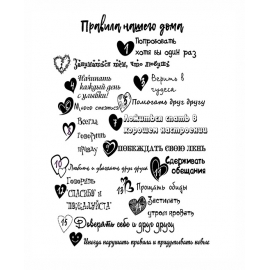 Правила нашего дома
1 Попробовать
хотя бы один раз
2 Заниматься тем, что любишь
4 Начинать
каждый день
с улыбки!
3 Верить в
чудеса
Много смеяться
Помогать друг другу
Всегда
Говорить
правду
Ложиться спать в
хорошем настроении
ПОБЕЖДАТЬ СВОЮ ЛЕНЬ
Сдерживать
обещания
Любить и уважать друг друга
Говорить
"СПАСИБО" и
"ПОЖАЛУЙСТА"
13 Прощать обиды
Застилать
утром кровать
15 Доверять себе и друг другу
Иногда нарушать правила и придумывать новые